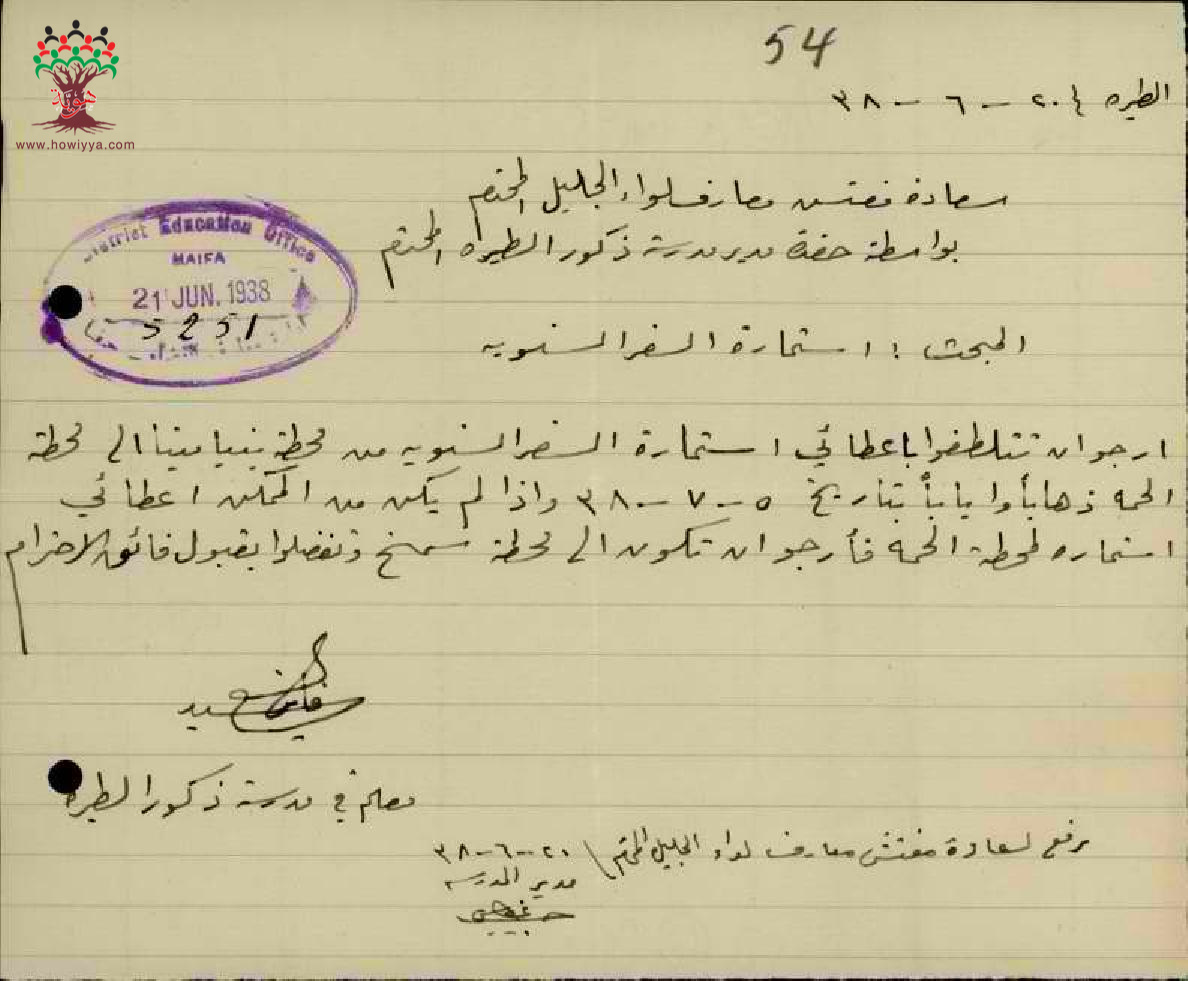 54
الطيره في ٢٠ - ٦ - ٣٨
سعادة مفتش معارف لواء الجليل المحترم
بواسطة حضرة مدير مدرسة ذكور الطيره المحترم
District Education Office
HAIFA
21 JUN. 1938
5251
المبحث : استمارة السفر السنويه
ارجو ان تتلطفوا باعطائي استمارة السفر السنويه من محطة بنيامينا الى محطة
الحمه ذهاباً واياباً بتاريخ ٥ - ٧ - ٣٨ واذا لم يكن من الممكن اعطائي
استماره لمحطة الحمه فأرجو ان تكون الى محطة سمخ وتفضلوا بقبول فائق الاحترام
معلم في مدرسة ذكور الطيره
يرفع لسعادة مفتش معارف لواء الجليل المحترم
٢٠ - ٦ - ٣٨
مدير المدرسه
www.howiyya.com